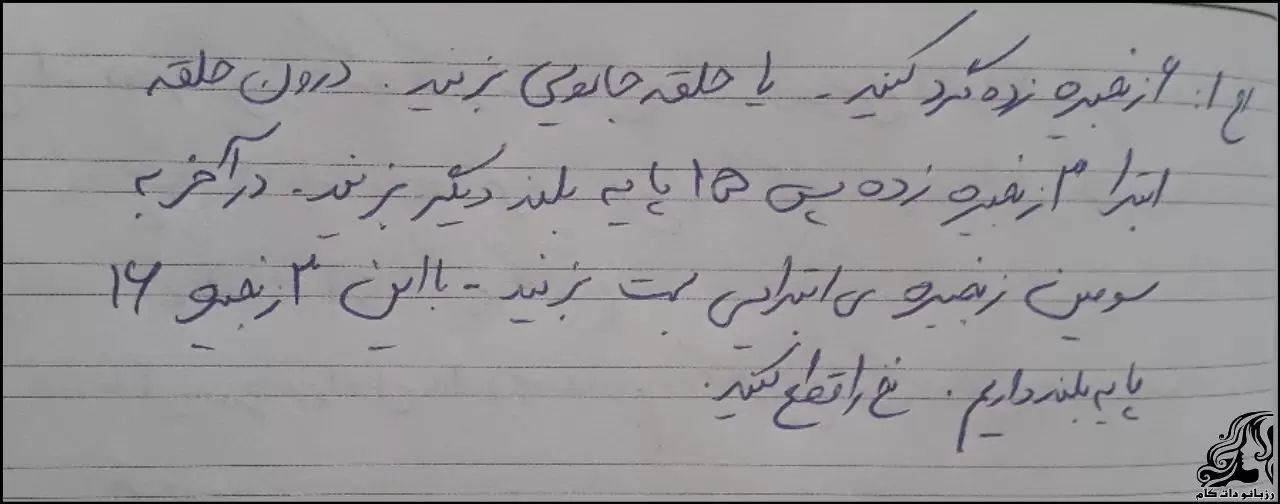 ج۱: ۶ زنجیره زده گرد کنید - یا حلقه جادویی بزنید. درون حلقه
ابتدا ۳ زنجیره زده سپس ۱۵ پایه بلند دیگر بزنید - در آخر به
سومین زنجیره ی ابتدایی بست بزنید - با این ۳ زنجیره ۱۶
پایه بلند داریم. نخ را قطع کنید.
رزبانو دات کام